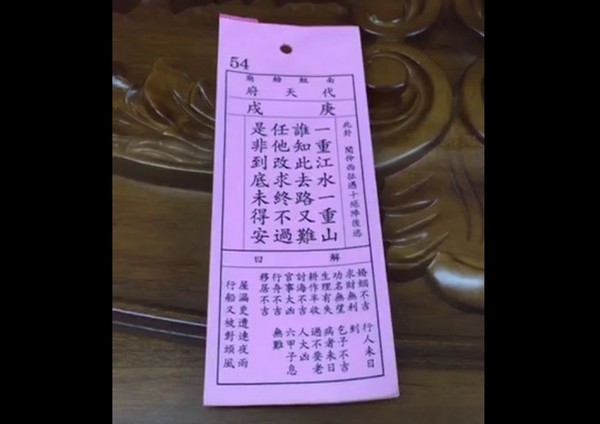 54
南鯤鯓廟
代天府
庚戌
此卦 聞仲西征過十絕陣後逃
一重江水一重山
誰知此去路又難
任他改求終不過
是非到底未得安
解曰
婚姻不吉
求財無利
功名無望
生理有失
耕作半收
討海不吉
官事大凶
行舟不吉
移居不吉
行人未日
到
乞子不吉
病者未日
過不要老
人大凶
六甲子息
無難
屋漏更遭連夜雨
行船又被對頭風